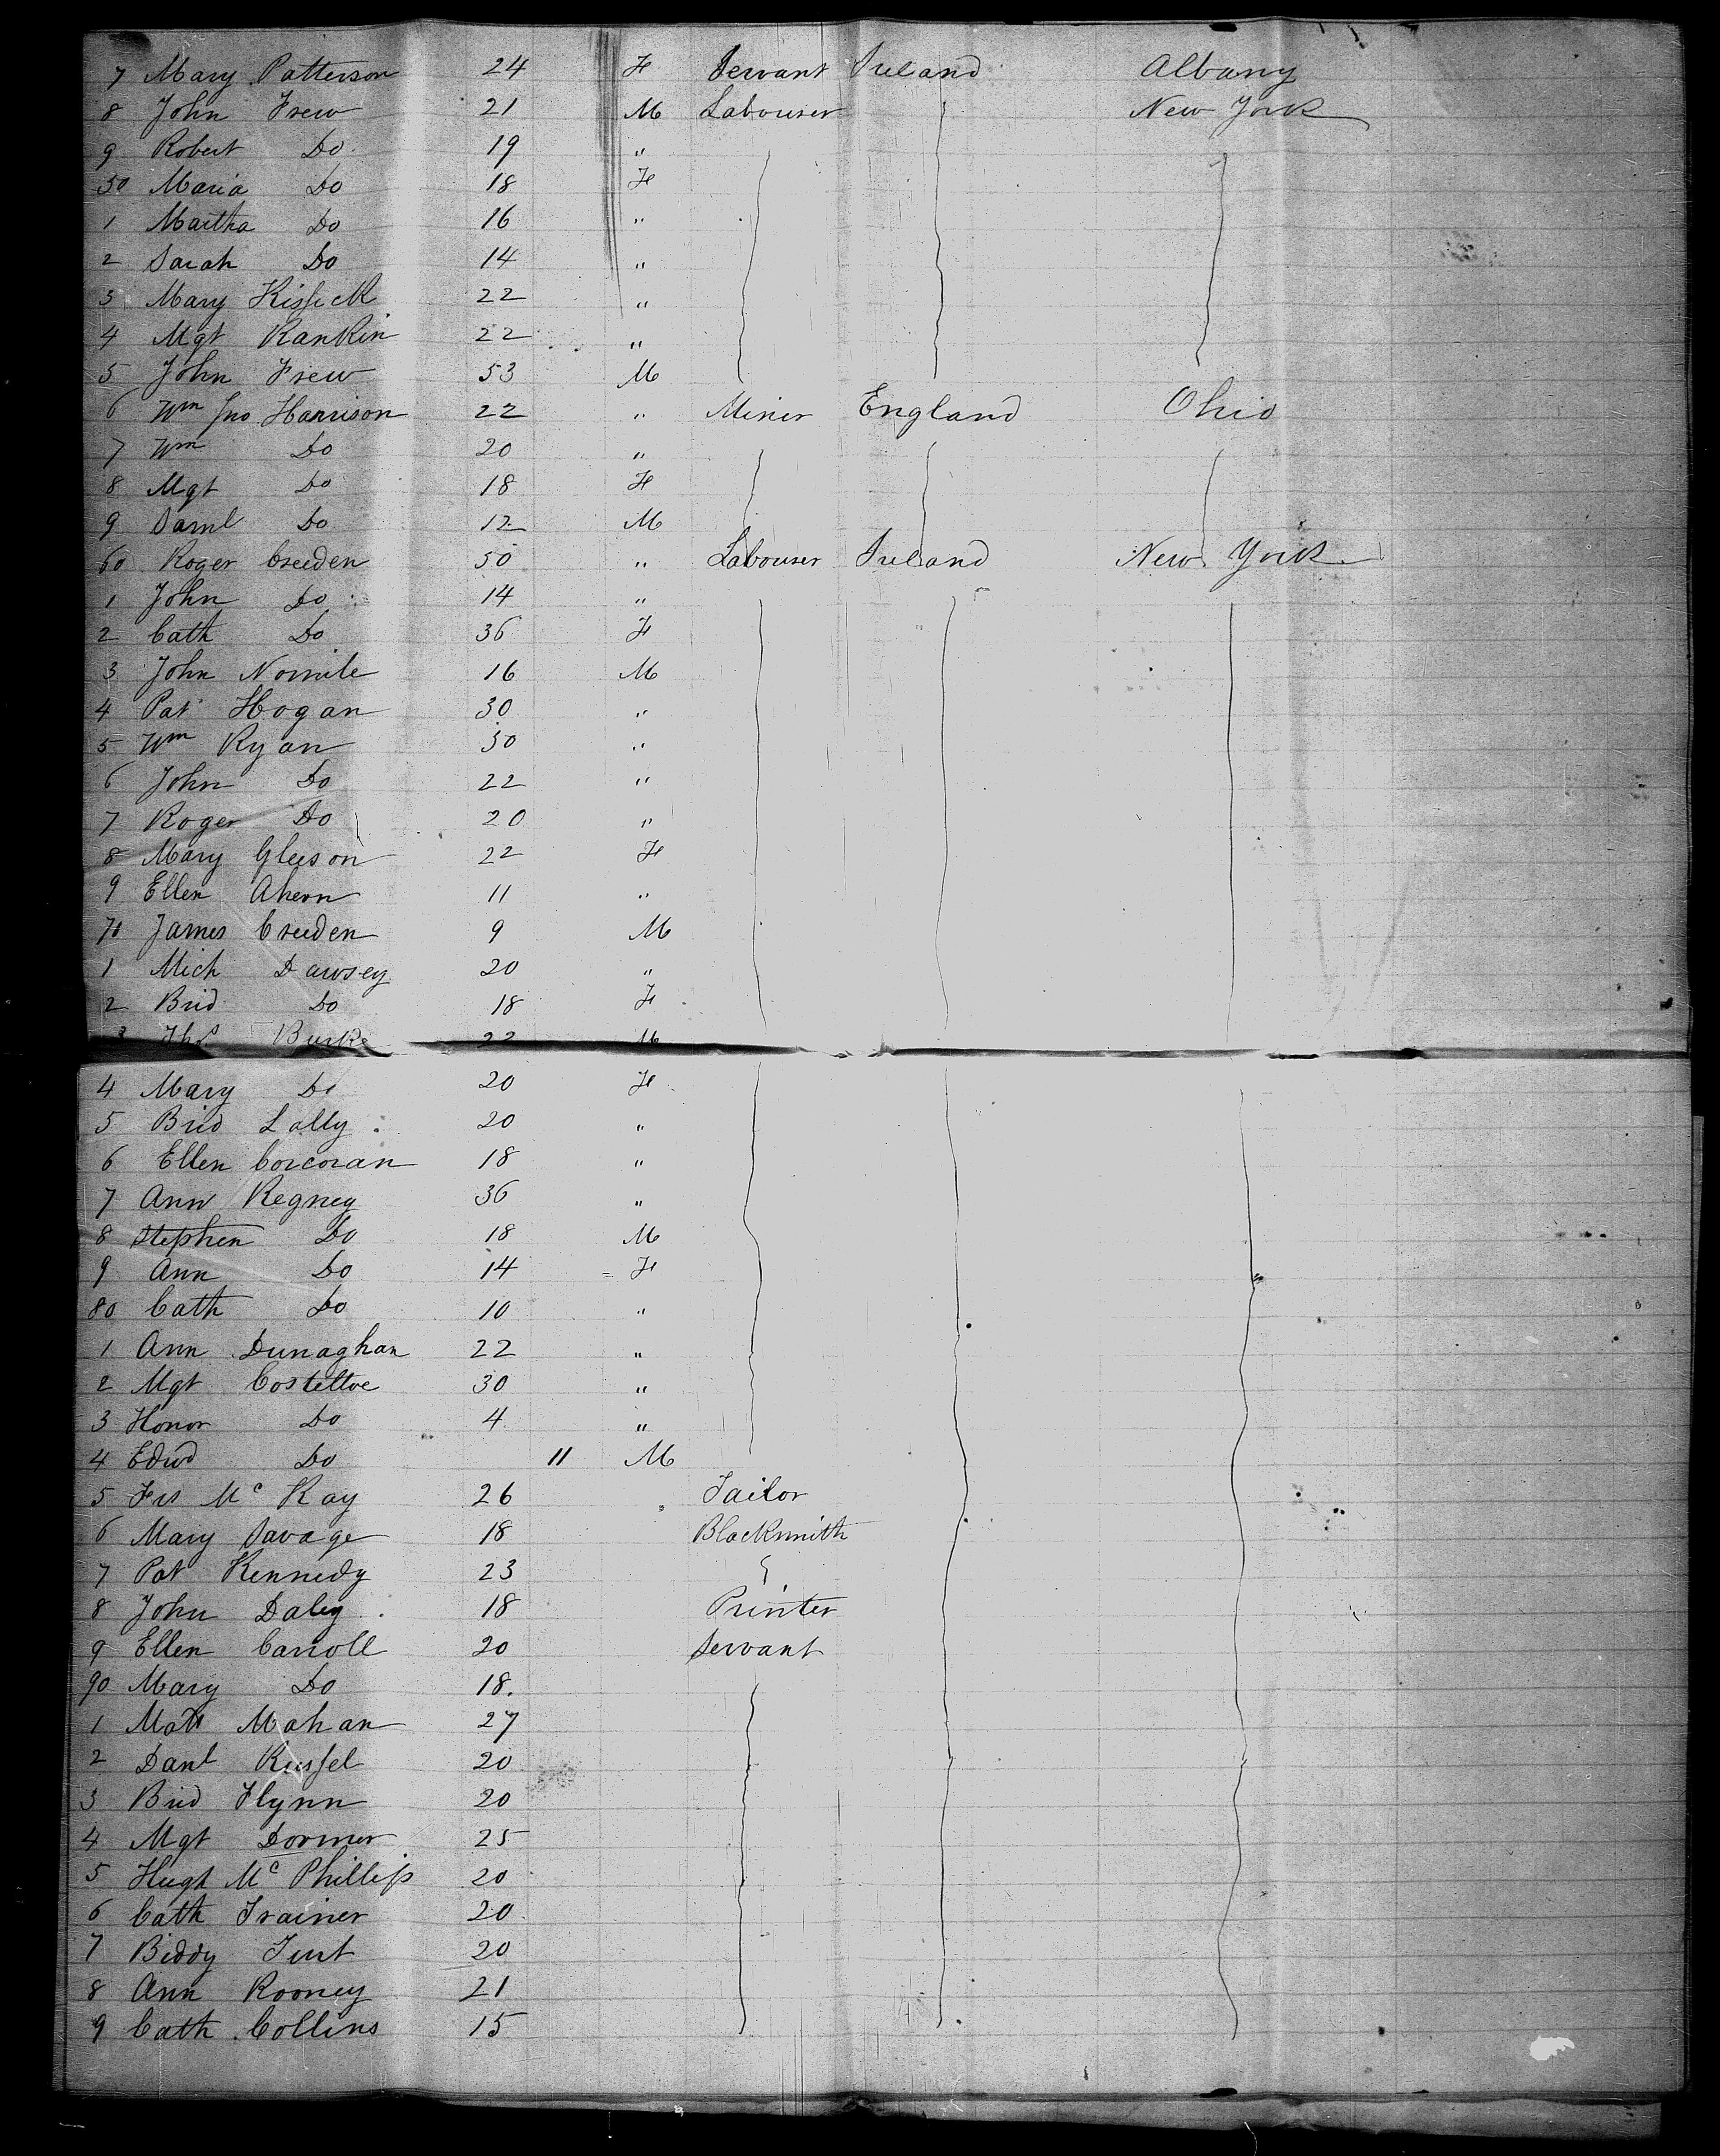 7 Mary Patterson 24 F Servant Ireland Albany
8 John Frew 21 M Labourer New York
9 Robert Do 19 "
50 Maria Do 18 F
1 Martha Do 16 "
2 Sarah Do 14 "
3 Mary Kissick 22 "
4 Mgt Rankin 22 "
5 John Frew 53 M
6 Wm Jno Harrison 22 " Miner England Ohio
7 Wm Do 20 "
8 Mgt Do 18 F
9 Saml Do 12 M
60 Roger Creeden 50 " Labourer Ireland New York
1 John Do 14 "
2 Cath Do 36 F
3 John Normile 16 M
4 Pat Hogan 30 "
5 Wm Ryan 30 "
6 John Do 22 "
7 Roger Do 20 "
8 Mary Gleeson 22 F
9 Ellen Ahern 11 "
70 James Creeden 9 M
1 Mich Dawsey 20 "
2 Brid Do 18 F
3 Thos Burke 22 M
4 Mary Do 20 F
5 Brid Lally 20 "
6 Ellen Corcoran 18 "
7 Ann Regney 36 "
8 Stephen Do 18 M
9 Ann Do 14 F
80 Cath Do 10 "
1 Ann Dunaghan 22 "
2 Mgt Costelloe 30 "
3 Honor Do 4 "
4 Edwd Do 11 M
5 Frs Mc Kay 26 " Tailor
6 Mary Savage 18 Blacksmith
7 Pat Kennedy 23
8 John Daley 18 Printer
9 Ellen Carroll 20 Servant
90 Mary Do 18.
1 Matt Mahan 27
2 Danl Russel 20
3 Brid Flynn 20
4 Mgt Dormer 25
5 Hugh Mc Phillips 20
6 Cath Trainer 20
7 Biddy 20
8 Ann Rooney 21
9 Cath Collins 15